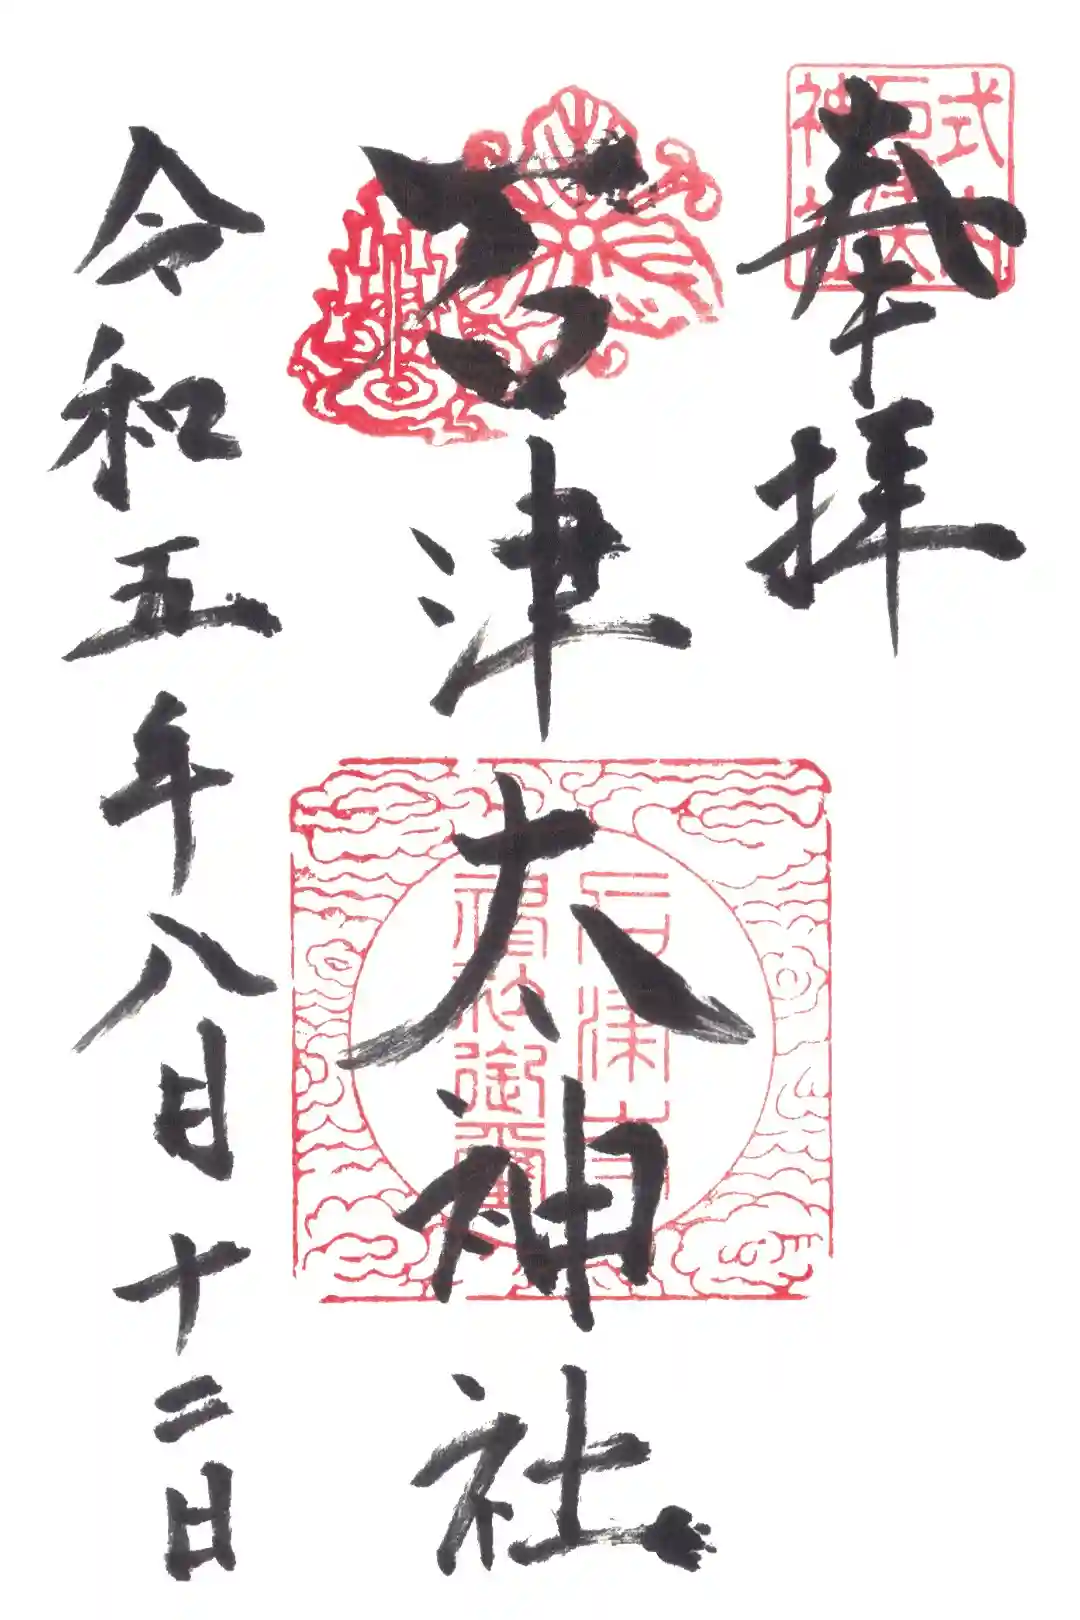 奉拝
石津太神社
令和五年八月十二日
式内
石津太
神社
神社御璽